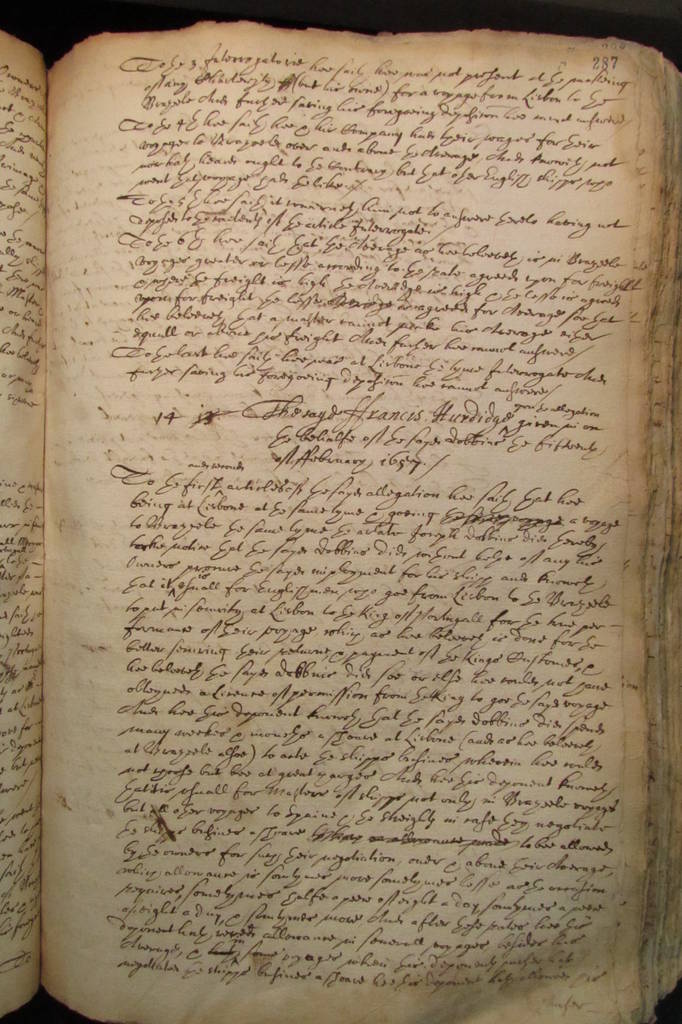 287
To the 3 Interrogatorie hee saith hee was not present at the making
of any Charterparty (but his owne) for a voyage from Lisbon to the
Brazeele And further saving his foregoeing deposition hee cannot answere/
To the 4th hee saith hee & his Company had their wages for their
voyage to Brazeele over and above the Average, And knoweth not
nor hath heard ought to the Contrary but that other English shipps who
went that voyage had the like/
To the 5th hee saith it concerneth him not to answere hereto having not
deposed to the contents of the article Interrogate.
To the 6th hee saith that the Average as hee beleeveth is in Brazeele
voyages greater or lesse according to the rate agreed upon for freight
where the freight is high the Average is high & the lesse is agreed
upon for freight the lesse Average is agreed for Average soe that
hee beleeveth that a master cannot make his Average either
equall or above his freight And further hee cannot answere/
To the last hee saith hee was at Lisbone the tyme Interrogate And
further saving his foregoeing deposition hee cannot answere/
14 The sayd Ffrancis Hurdidge upon the allegation given in on
the behalfe of the sayd Dobbins the fifteenth
of February 1657./
To the first and second articles of the sayd allegation hee saith that hee
being at Lisbone at the same tyme & goeing a voyage
to Brazeele the same tyme the arlate Joseph Dobbins did thereby
tooke notice that the sayd Dobbins did without helpe of any his
Owners procure the sayd imployment for his shipp and knoweth
that it is usuall for Englishmen who goe from Lisbon to the Brazeele
to put in security at Lisbon to the King of Portugall for the true per=
formance of their voyage which as hee beleeveth is done for the
better secureing their returne & payment of the Kings Customes, &
hee beleeveth the sayd dobbins did soe or else hee could not have
obteyned a Licence of permission from the King to goe the sayd voyage
And hee this deponent knoweth that the sayd dobbins did spend
many weekes & moneths a shoare at Lisbone (and as hee beleeveth
at Brazeele alsoe) to acte the shipps busines wherein hee could
not choose but bee at great charges And hee this deponent knoweth
that it is usuall for Masters of shipps not only in Brazeele voyages
but all other voyages to Spaine & the streights in case they negotiate
the shipps busines a shoare to bee allowed
by the owners for such their negotiation, over & above their Average,
which allowance is somtymes more somtymes lesse as the occasion
requires, somtymes halfe a peece of eight a day, somtymes a peece
of eight a day, & somtymes more And after these rates hee this
deponent hath received allowance in severall voyages besides his
Average, & in some voyages when this deponent hath
negotiated the shipps busines a shoare hee this deponent hath allowed